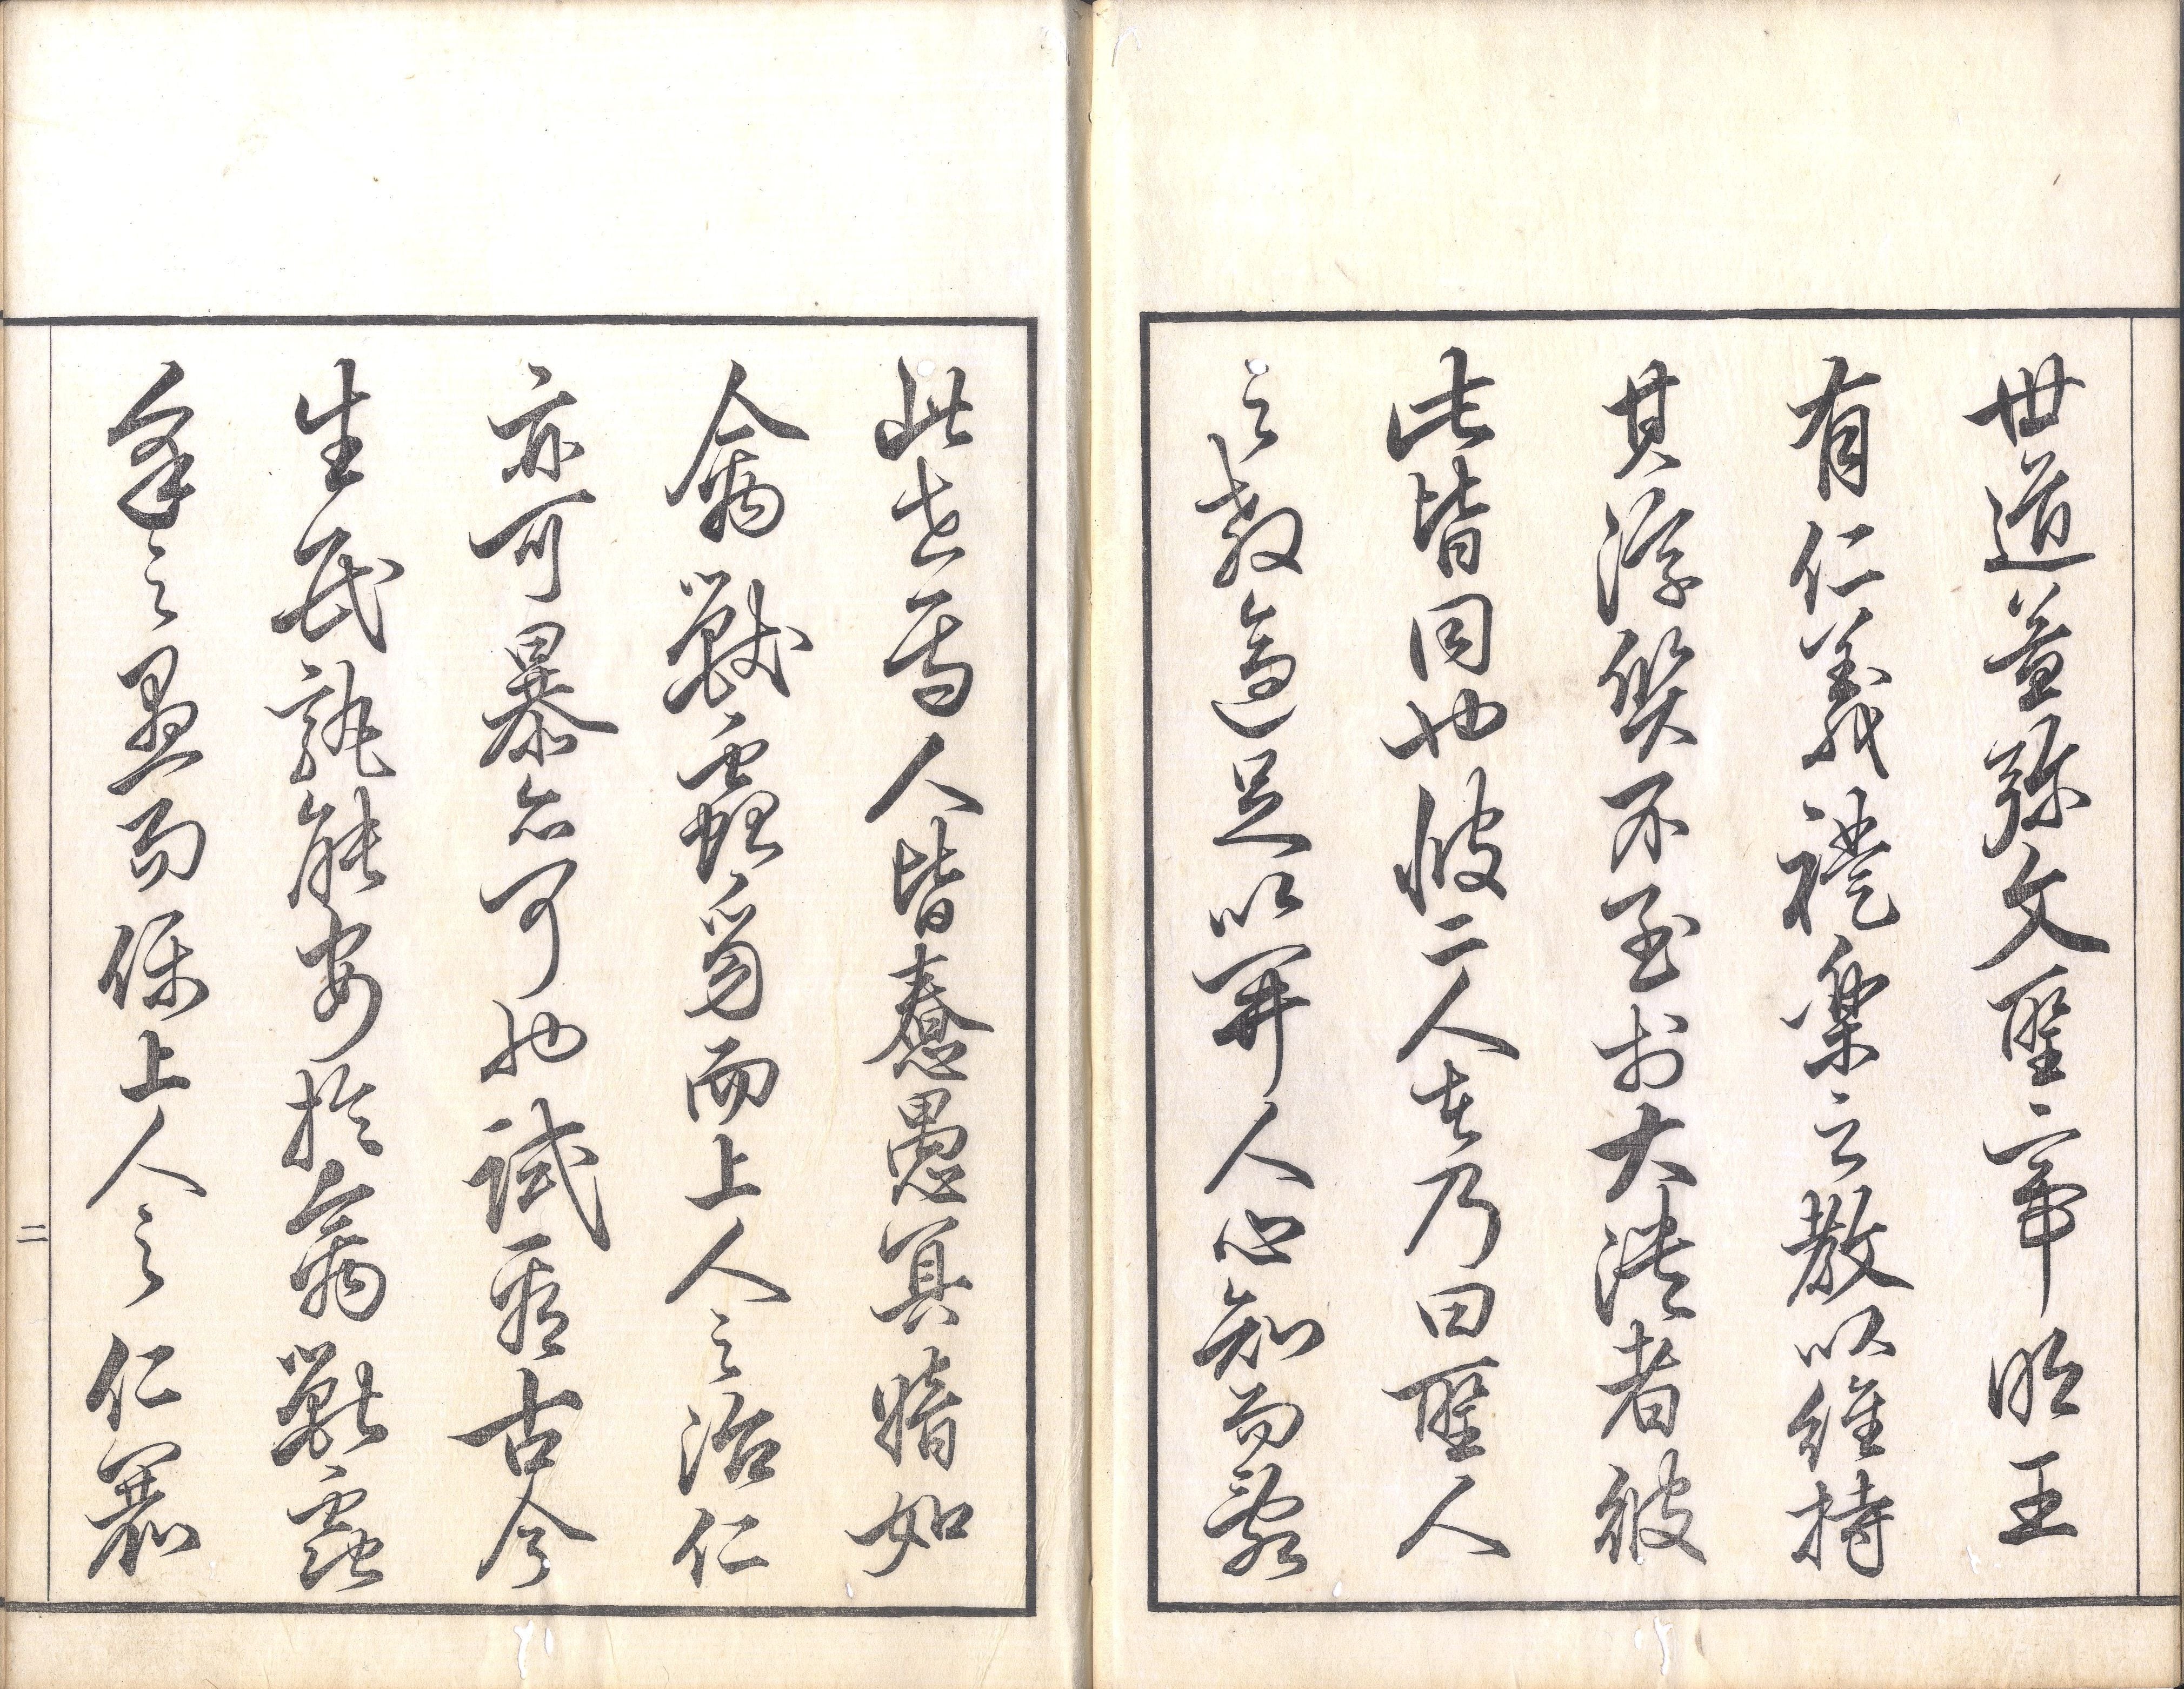 世道益弥文聖帝明王
有仁義禮樂之教以維持
其浮僞不至於大潰者彼
此皆同也彼二人者乃曰聖人
之教適足以開人心知而
此者爲人皆蠢愚冥暗如
禽獸蟲而上人之治仁
亦可暴亦可也試看古今
生民孰能安於禽獸蟲
之愚而保上人之仁
二